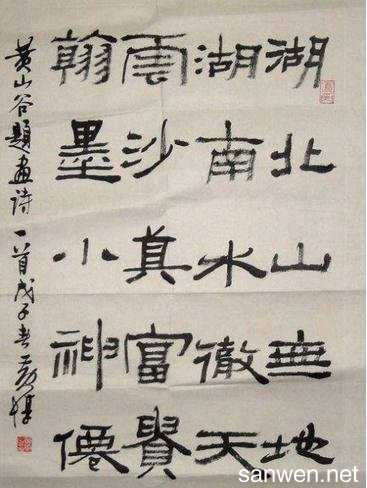 湖北山無地
湖南水徹天
雲沙真富貴
翰墨小神僊
黄山谷題畫詩一首戊子春黄惇
sanwen.net